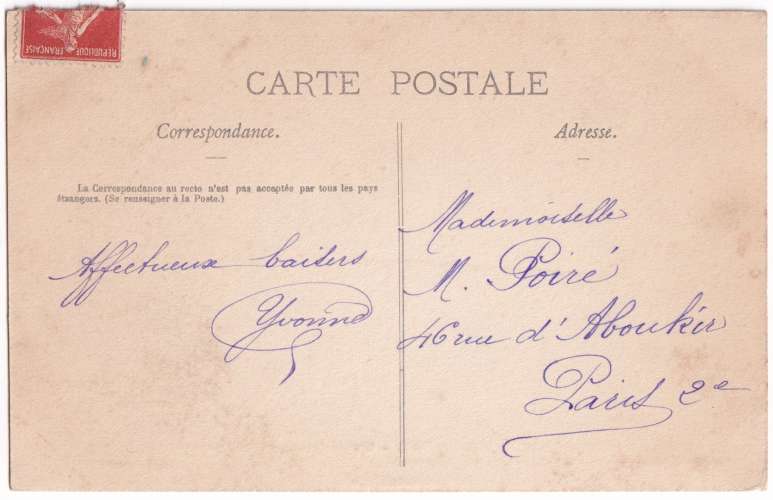 RÉPUBLIQUE FRANÇAISE
CARTE POSTALE
Correspondance.
La Correspondance au recto n'est pas acceptée par tous les pays
étrangers. (Se renseigner à la Poste.)
Affectueux baisers
Yvonne
Adresse.
Mademoiselle
M. Poiré
46 rue d'Aboukir
Paris 2e